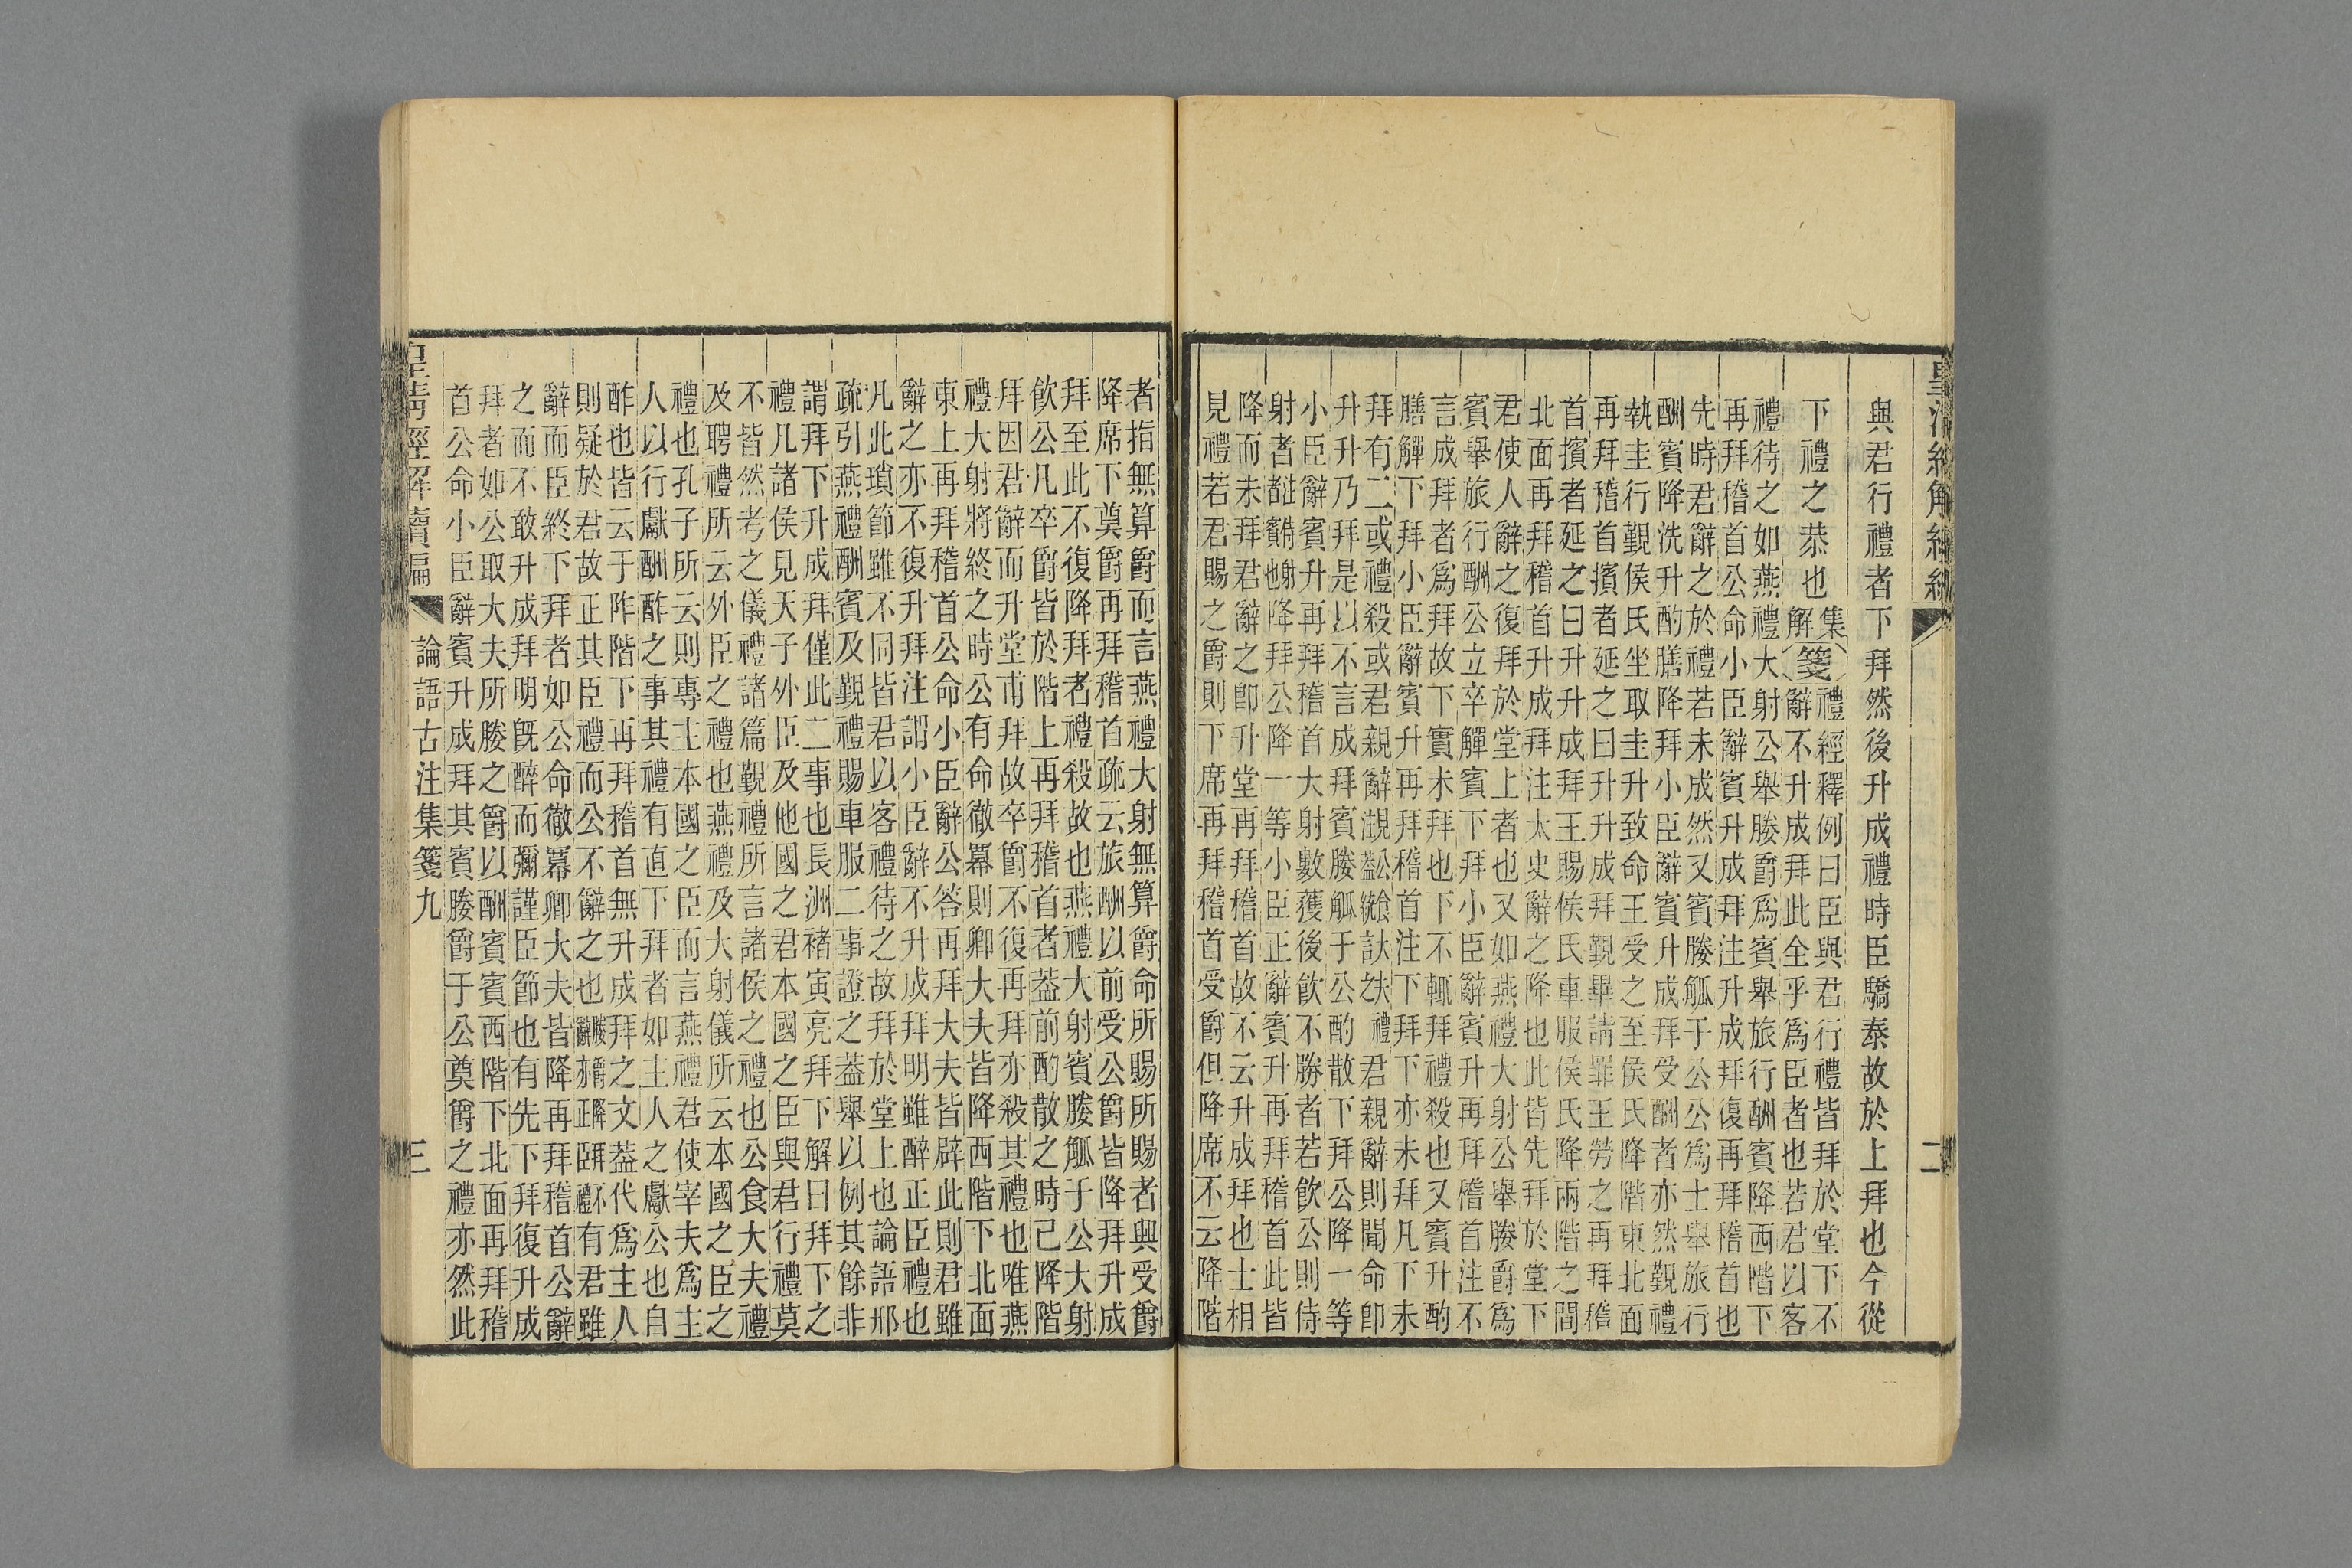 與君行禮者下拜然後升成禮時臣驕泰故於上拜也今從
下禮之恭也
集解
箋
禮經釋例曰臣與君行禮皆拜於堂下不
辭不升成拜此全乎爲臣者也若君以客
禮待之如燕禮大射公舉媵爵爲賓舉旅行酬賓降西階下
再拜稽首公命小臣辭賓升成拜注升成拜復再拜稽首也
先時君辭之於禮若未成然又賓媵觚于公公爲士舉旅行
酬賓降洗升酌膳降拜小臣辭賓升成拜受酬者亦然覲禮
執圭行覲侯氏坐取圭升致命王受之至侯氏降階東北面
再拜稽首擯者延之曰升升成拜覲畢請罪王勞之再拜稽
首擯者延之曰升升成拜王賜侯氏車服侯氏降兩階之間
北面再拜稽首升成拜注太史辭之降也此皆先拜於堂下
君使人辭之復拜於堂上者也又如燕禮大射公舉媵爵爲
賓舉旅行酬公立卒觶賓下拜小臣辭賓升再拜稽首注不
言成拜者爲拜故下實未拜也下不輒拜禮殺也又賓升酌
膳觶下拜小臣辭賓升再拜稽首注下拜下亦未拜凡下未
拜有二或禮殺或君親辭 禮君親辭則聞命即
升升乃拜是以不言成拜賓媵觚于公酌散下拜公降一等
小臣辭賓升再拜稽首大射數獲後飲不勝者若飲公則侍
射者 降拜公降一等小臣正辭賓升再拜稽首此皆
降而未拜君辭之即升堂再拜稽首故不云升成拜也士相
見禮若君賜之爵則下席再拜稽首受爵但降席不云降階
二
者指無算爵而言燕禮大射無算爵命所賜所賜者興受爵
降席下奠爵再拜稽首疏云旅酬以前受公爵皆降拜升成
拜至此不復降拜者禮殺故也燕禮大射賓媵觚于公大射
飲公凡卒爵皆於階上再拜稽首者葢前酌散之時已降階
拜因君辭而升堂再拜故卒爵不復再拜亦殺其禮也唯燕
禮大射將終之時公有命徹冪則卿大夫皆降西階下北面
東上再拜稽首公命小臣辭公答再拜大夫皆辟此則君雖
辭之亦不復升拜注謂小臣辭不升成拜明雖醉正臣禮也
凡此瑣節雖不同皆君以客禮待之故拜於堂上也論語邢
疏引燕禮酬賓及覲禮賜車服二事證之葢舉以例其餘非
謂拜下升成拜僅此二事也長洲褚寅亮拜下解曰拜下之
禮凡諸侯見天子外臣及他國之君本國之臣與君行禮莫
不皆然考之儀禮諸篇覲禮所言諸侯之禮也公食大夫禮
及聘禮所云外臣之禮也燕禮及大射儀所云本國之臣之
禮也孔子所云則專主本國之臣而言燕禮君使宰夫爲主
人以行獻酬酢之事其禮有直下拜者如主人之獻公也自
酢也皆云于阼階下再拜稽首無升成拜之文葢代爲主人
則疑於君故正其臣禮而公不辭之也 有君雖
辭而臣終下拜者如公命徹冪卿大夫皆降再拜稽首公辭
之而不敢升成拜明既醉而彌謹臣節也有先下拜復升成
拜者如公取大夫所媵之爵以酬賓賓西階下北面再拜稽
首公命小臣辭賓升成拜其賓媵爵于公奠爵之禮亦然此
論語古注集箋九
三